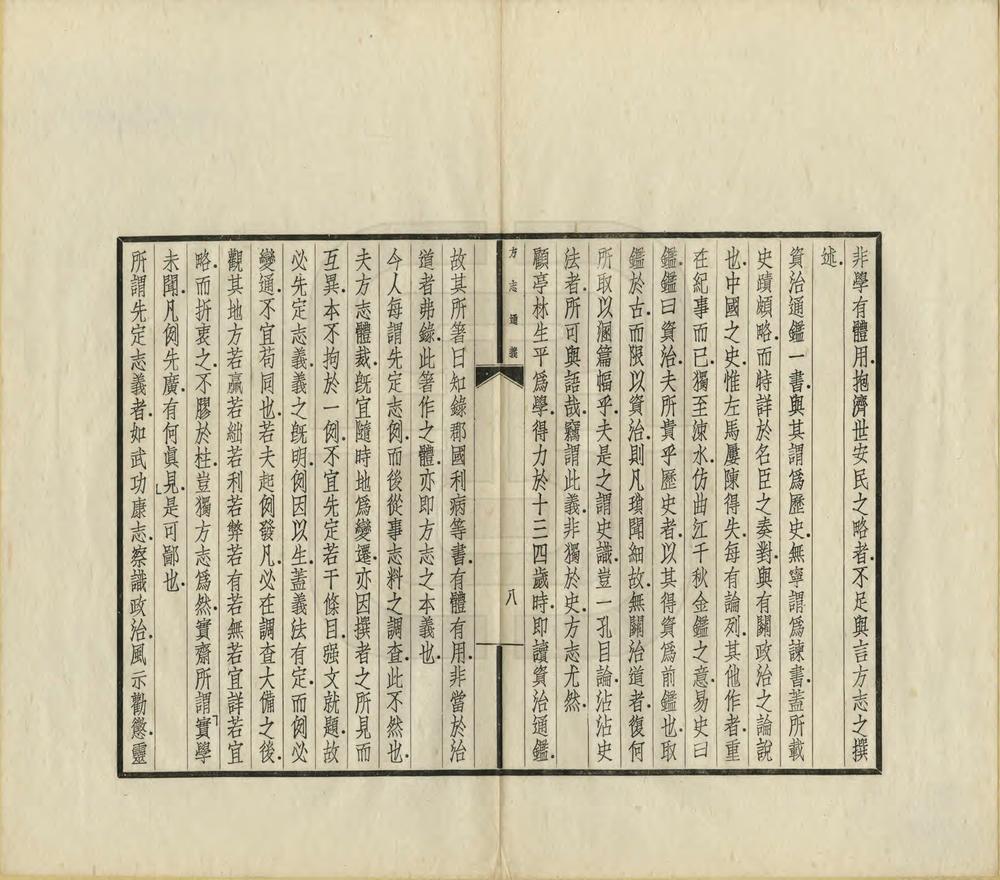 非學有體用．抱濟世安民之略者．不足與言方志之撰
述．
資治通鑑一書．與其謂爲歷史．無寧謂爲諫書．蓋所載
史蹟頗略．而特詳於名臣之奏對．與有關政治之論說
也．中國之史．惟左馬屢陳得失．每有論列．其他作者．重
在紀事而已．獨至涑水．仿曲江千秋金鑑之意．易史曰
鑑．鑑曰資治．夫所貴乎歷史者．以其得資爲前鑑也．取
鑑於古．而限以資治．則凡瑣聞細故．無關治道者．復何
所取以溷篇幅乎．夫是之謂史識．豈一孔目論．沾沾史
法者．所可與語哉．竊謂此義．非獨於史．方志尤然．
顧亭林生平爲學．得力於十三四歲時．即讀資治通鑑．
方志通義
八
故其所箸日知錄郡國利病等書．有體有用．非當於治
道者弗錄．此箸作之體．亦即方志之本義也．
今人每謂先定志例．而後從事志料之調查．此不然也．
夫方志體裁．旣宜隨時地爲變遷．亦因撰者之所見而
互異．本不拘於一例．不宜先定若干條目．强文就題．故
必先定志義．義之旣明．例因以生．蓋義法有定．而例必
變通．不宜苟同也．若夫起例發凡．必在調查大備之後．
觀其地方若贏若絀若利若弊若有若無若宜詳若宜
略．而折衷之．不膠於柱．豈獨方志爲然．實齋所謂「實學
未聞．凡例先廣．有何眞見」是可鄙也．
所謂先定志義者．如武功康志．察識政治．風示勸懲．靈